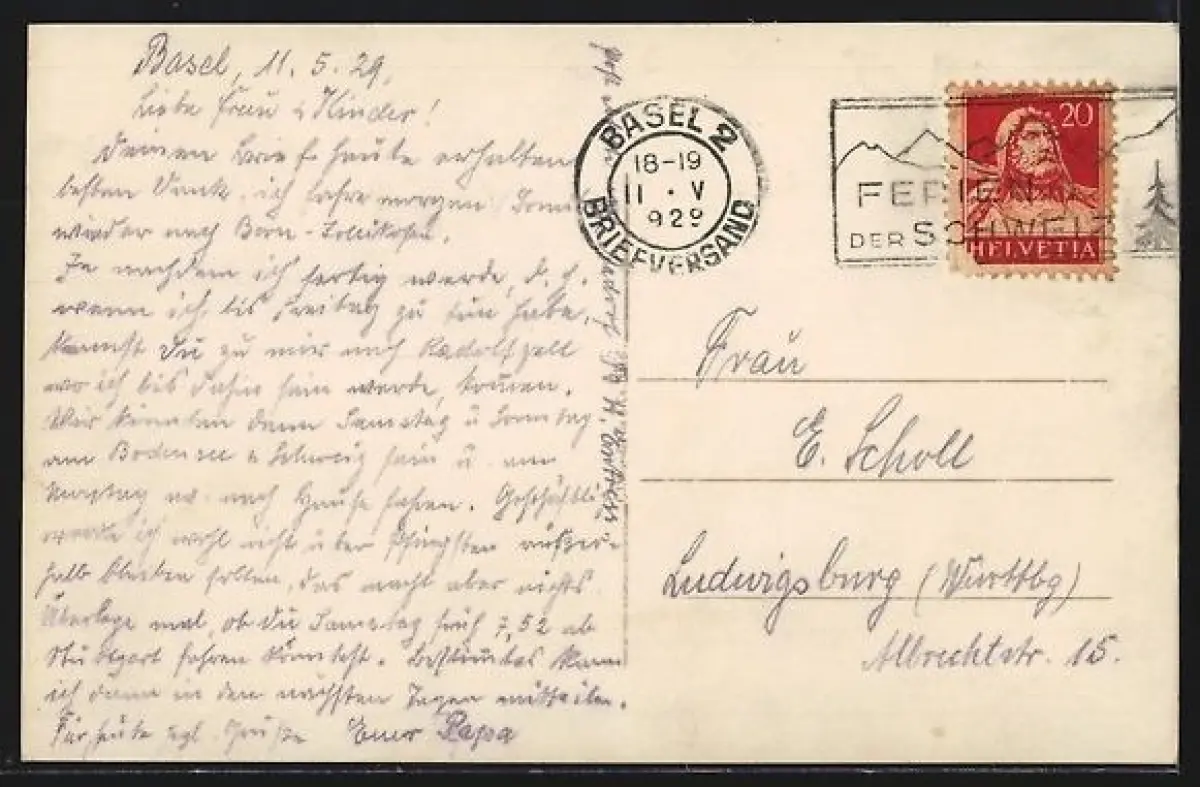 Basel, 11.5.29.
Liebe Frau u Kinder!
Deinen Brief heute erhalten
besten Dank. ich fahre morgen Sonn
wieder nach Bern-Zollikofen.
Je nachdem ich fertig werde, d.h.
wenn ich bis Freitag zu tun habe,
kannst Du zu mir nach Radolfzell
wo ich bis dahin sein werde, kommen.
Wir könnten dann Samstag u Sonntag
am Bodensee u Schweiz sein u. am
Montag nach Hause fahren. Geschäftli
werde ich wohl nicht über Pfingsten außer-
halb bleiben sollen, das macht aber nichts.
Überlege mal, ob du Samstag früh 7,52 ab
Stuttgart fahren könntest. Bestimmtes kann
ich dann in den nächsten Tagen mitteilen.
Für heute hzl. Grüße Euer Papa
BASEL 2
18-19
11 · V
1929
BRIEFVERSAND
FERIEN IN
DER SCHWEIZ
20
HELVETIA
Frau
E. Scholl
Ludwigsburg (Württbg)
Albrechtstr. 15.